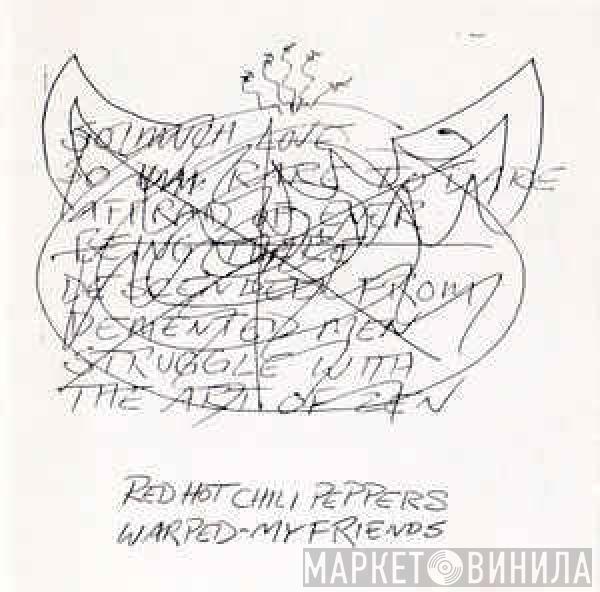 SO MUCH LOVE
SO RARE TO DARE
AFRAID OF EVER
BEING
DESCENDED FROM
DEMENTED MEN
STRUGGLE WITH
THE ART OF ZEN
RED HOT CHILI PEPPERS
WARPED-MY FRIENDS
МАРКЕТ ВИНИЛА